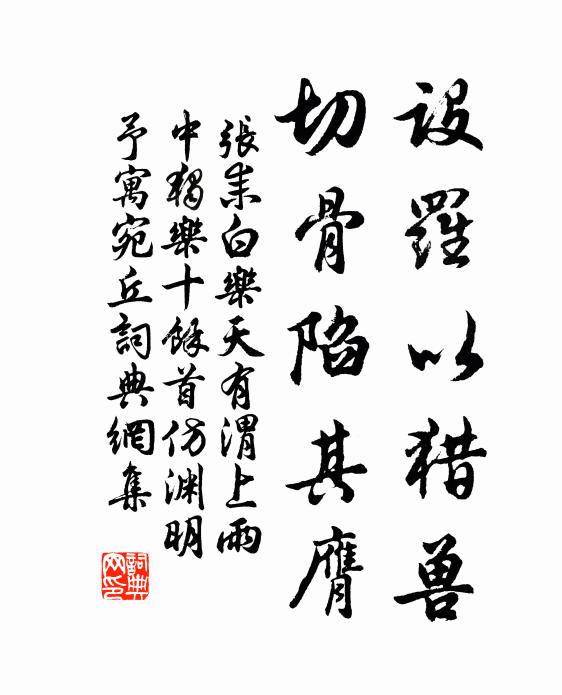 设羅以猎兽
切骨陷其膺
張耒白樂天有渭上雨
中独樂十餘首仿渊明
予寓宛丘詞典網集
詞典
网印